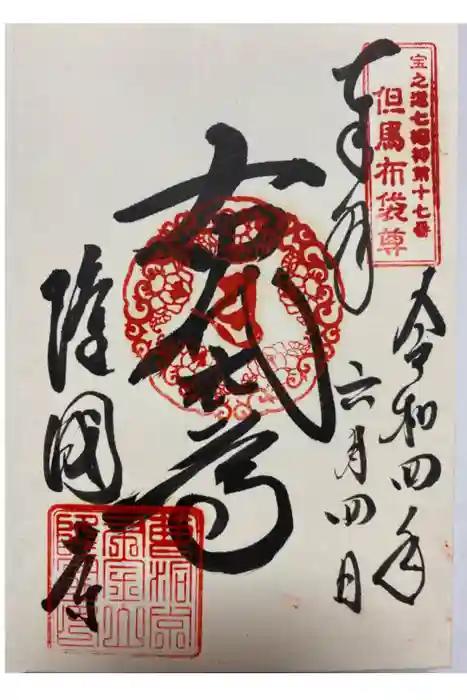 宝之道七福神第十七番
但馬布袋尊
奉拝
令和四年
六月四日
布袋尊
隆國寺